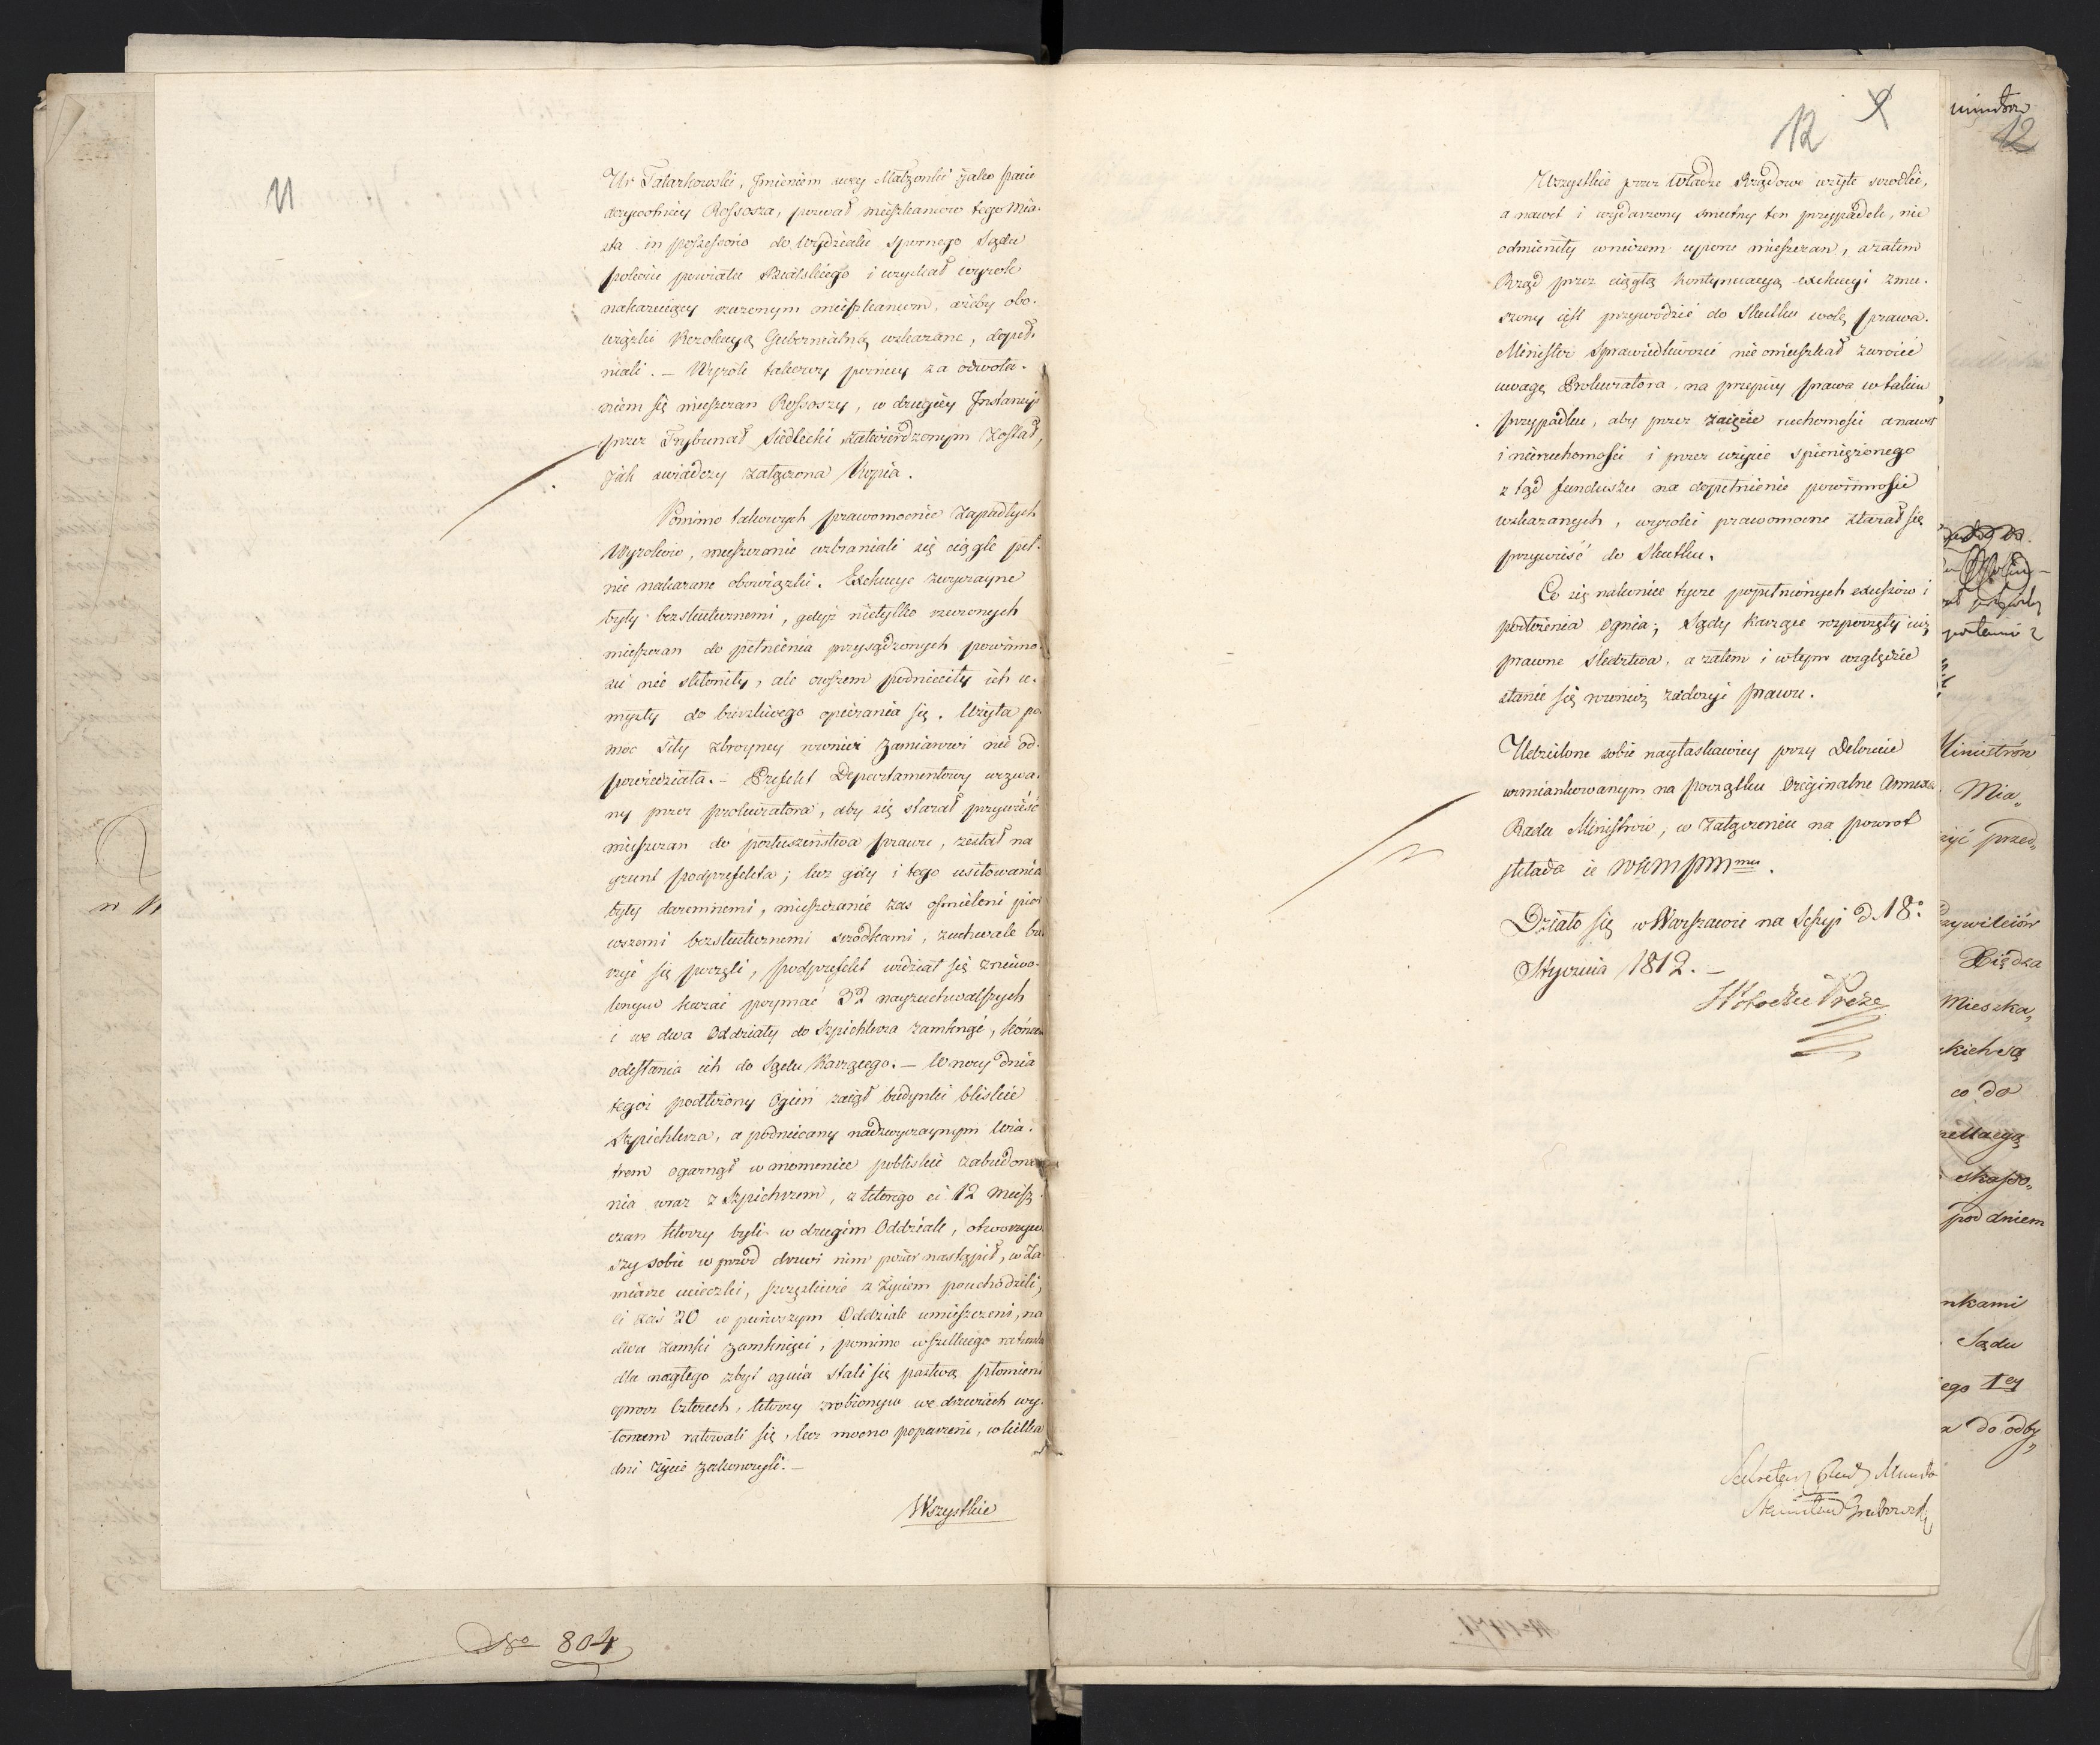 11
Ur Tatarkowski, Jmieniem swey Małżonki jako pani
dożywotniey Rossosza, pozwał mieszkancow tego Mia-
sta in possessorio do Wydziału Spornego Sądu
pokoiu powiatu Bialskiego i uzyskał wyrok
nakazuiący rzeczonym mieszkancom, ażeby obo-
wiązki Rezolucyą Gubernialną wskazane, dopeł-
niali. – Wyrok takowy pozniey za odwoła-
niem się mieszczan Rossoszy, w drugiey Jnstancyi
przez Trybunał Siedlecki zatwierdzonym został,
jak swiadczy załączona Kopia.
Pomimo takowych prawomocnie zapadłych
Wyrokow, mieszczanie wzbraniali się ciągle peł-
nić nakazane obowiązki. Exekucye zwyczayne
były bezskutecznemi, gdyż nietylko rzeczonych
mieszczan do pełnienia przysądzonych powinno-
ści nie skłoniły, ale owszem podnieciły ich u-
mysły do burzliwego opierania się. Użyta po-
moc siły zbroyney rownież zamiarowi nie od-
powiedziała. – Prefekt Departamentowy wezwa-
ny przez prokuratora, aby się starał przywieść
mieszczan do posłuszeństwa prawu, zesłał na
grunt podprefekta; lecz gdy i tego usiłowania
były daremnemi, mieszczanie zas osmieleni pier
wszemi bezskutecznemi srzodkami, zuchwale bu
rzyć się poczęli, podprefekt widział się zniewo-
lonym kazać poymać 32 nayzuchwalszych
i we dwa Oddziały do Szpichlerza zamknąć, końcem
odesłania ich do Sądu Karzącego. – W nocy dnia
tegoż podłożony Ogień zaiął budynki bliskie
Szpichlerza, a podniecany nadzwyczaynym wia-
trem ogarnął w momencie pobliskie zabudowa
nia wraz z Szpichrzem, z ktorego ci 12 miesz
czan ktorzy byli w drugim Oddziale, otworzyw
szy sobie w przod drzwi nim pożar nastąpił, w za
miarze ucieczki, szczęśliwie z życiem pouchodzili,
ci zaś 20 w pierwszym Oddziale umieszczeni, na
dwa zamki zamknięci, pomimo wszelkiego ratunku
dla nagłego zbyt ognia stali się pastwą płomieni
oprocz czterech, ktorzy zrobionym we drzwiach wy-
łomem ratowali się, lecz mocno poparzeni, w kilka
dni życie zakonczyli. –
Wszystkie
No 804
12
Wszystkie przez Władze Rządowe użyte srzodki,
a nawet i wydarzony smutny ten przypadek, nie
odmieniły wniczem uporu mieszczan, a zatem
Rząd przez ciągłą kontynuacyą exekucyi zmu-
szony iest przywodzić do Skutku wolę prawa.
Minister Sprawiedliwości nieomieszkał zwrocić
uwagę Prokuratora, na przepisy prawa w takim
przypadku, aby przez zaięcie ruchomości a nawet
i nieruchomości i przez użycie spieniężonego
z tąd funduszu na dopełnienie powinności
wskazanych, wyroki prawomocne starał się
przywieść do Skutku.
Co się nakoniec tycze popełnionych excessow i
podłożenia ognia; Sądy karzące rozpoczęły iuż
prawne śledztwa, a zatem i wtym względzie
stanie się rownież zadosyć prawu.
Udzielone sobie nayłaskawiey przy Dekrecie
wzmiankowanym na początku Originalne Annexa
Rada Ministrow, w załączeniu na powrot
składa ie WKMPNmu.
Działo się w Warszawie na Sessyi d. 18o
Stycznia 1812. –
St Potocki Prezes
Sekretarz Rady Ministr
Stanisław Grabowski
12
Ministrów
Mia„
zyć przed„
Przywileiów
Xiędza
Mieszka„
co do
pod dniem
Sądu
ego 1ey
a do odby„